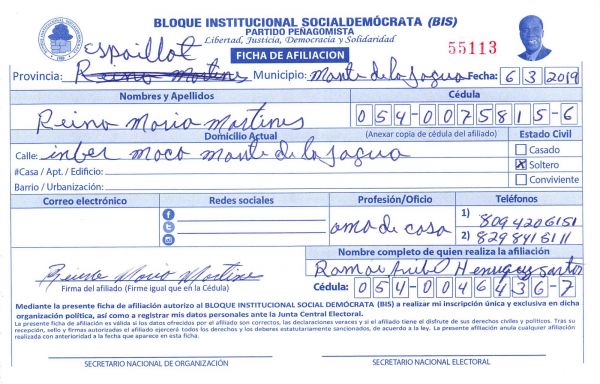 BLOQUE INSTITUCIONAL SOCIALDEMÓCRATA (BIS)
PARTIDO PEÑAGOMISTA
Libertad, Justicia, Democracia y Solidaridad
FICHA DE AFILIACION
55113
Espaillat
Provincia: Reino Martines Municipio: Monte de la Jagua Fecha: 6 3 2019
Nombres y Apellidos
Cédula
Reino Maria Martines
054-0075815-6
Domicilio Actual
(Anexar copia de cédula del afiliado)
Estado Civil
Calle: inber moca monte de la Jagua
Casado
#Casa / Apt. / Edificio:
X Soltero
Barrio / Urbanización:
Conviviente
Correo electrónico
Redes sociales
Profesión/Oficio
Teléfonos
ama de casa
1) 809 420 6151
2) 829 841 6111
Nombre completo de quien realiza la afiliación
Reina Maria Martines
Firma del afiliado (Firme igual que en la Cédula)
Cédula: 054-0046436-7
Mediante la presente ficha de afiliación autorizo al BLOQUE INSTITUCIONAL SOCIAL DEMÓCRATA (BIS) a realizar mi inscripción única y exclusiva en dicha
organización política, así como a registrar mis datos personales ante la Junta Central Electoral.
La presente ficha de afiliación es válida si los datos ofrecidos por el afiliado son correctos, las declaraciones veraces y si el afiliado tiene el disfrute de sus derechos civiles y políticos. Tras su
recepción, sello y firmas autorizadas el afiliado ejercerá todos los derechos y los deberes estatutariamente sancionados, de acuerdo a la ley. La presente afiliación anula cualquier afiliación
realizada con anterioridad a la fecha que aparece en esta ficha.
SECRETARIO NACIONAL DE ORGANIZACIÓN
SECRETARIO NACIONAL ELECTORAL